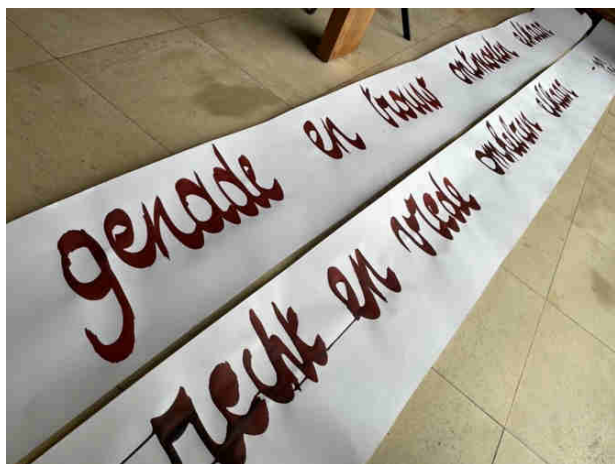 genade en trouw ontmoeten elkaar
recht en vrede omhelzen elkaar